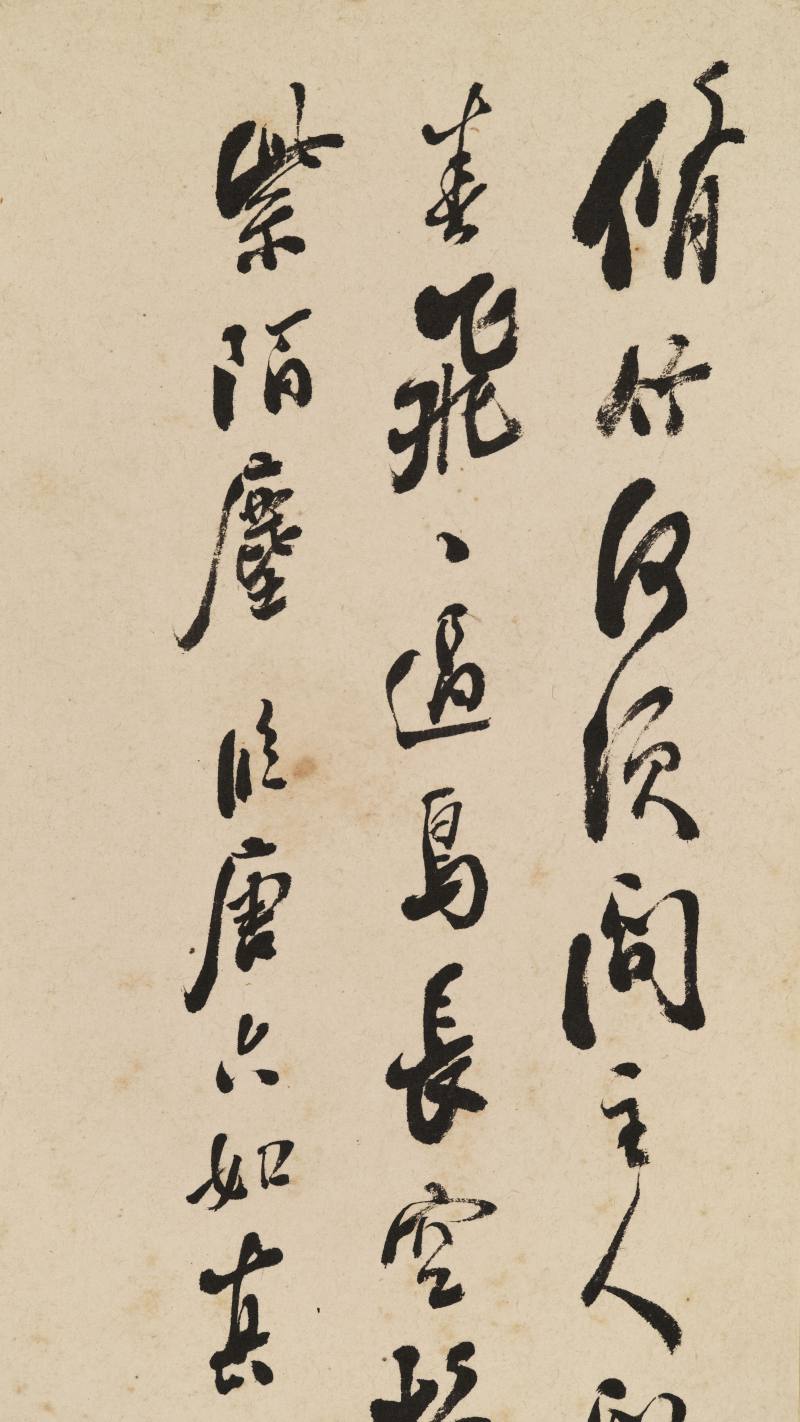 脩竹何須問主人
飛、過鳥長空
紫陌塵 臨唐六如真